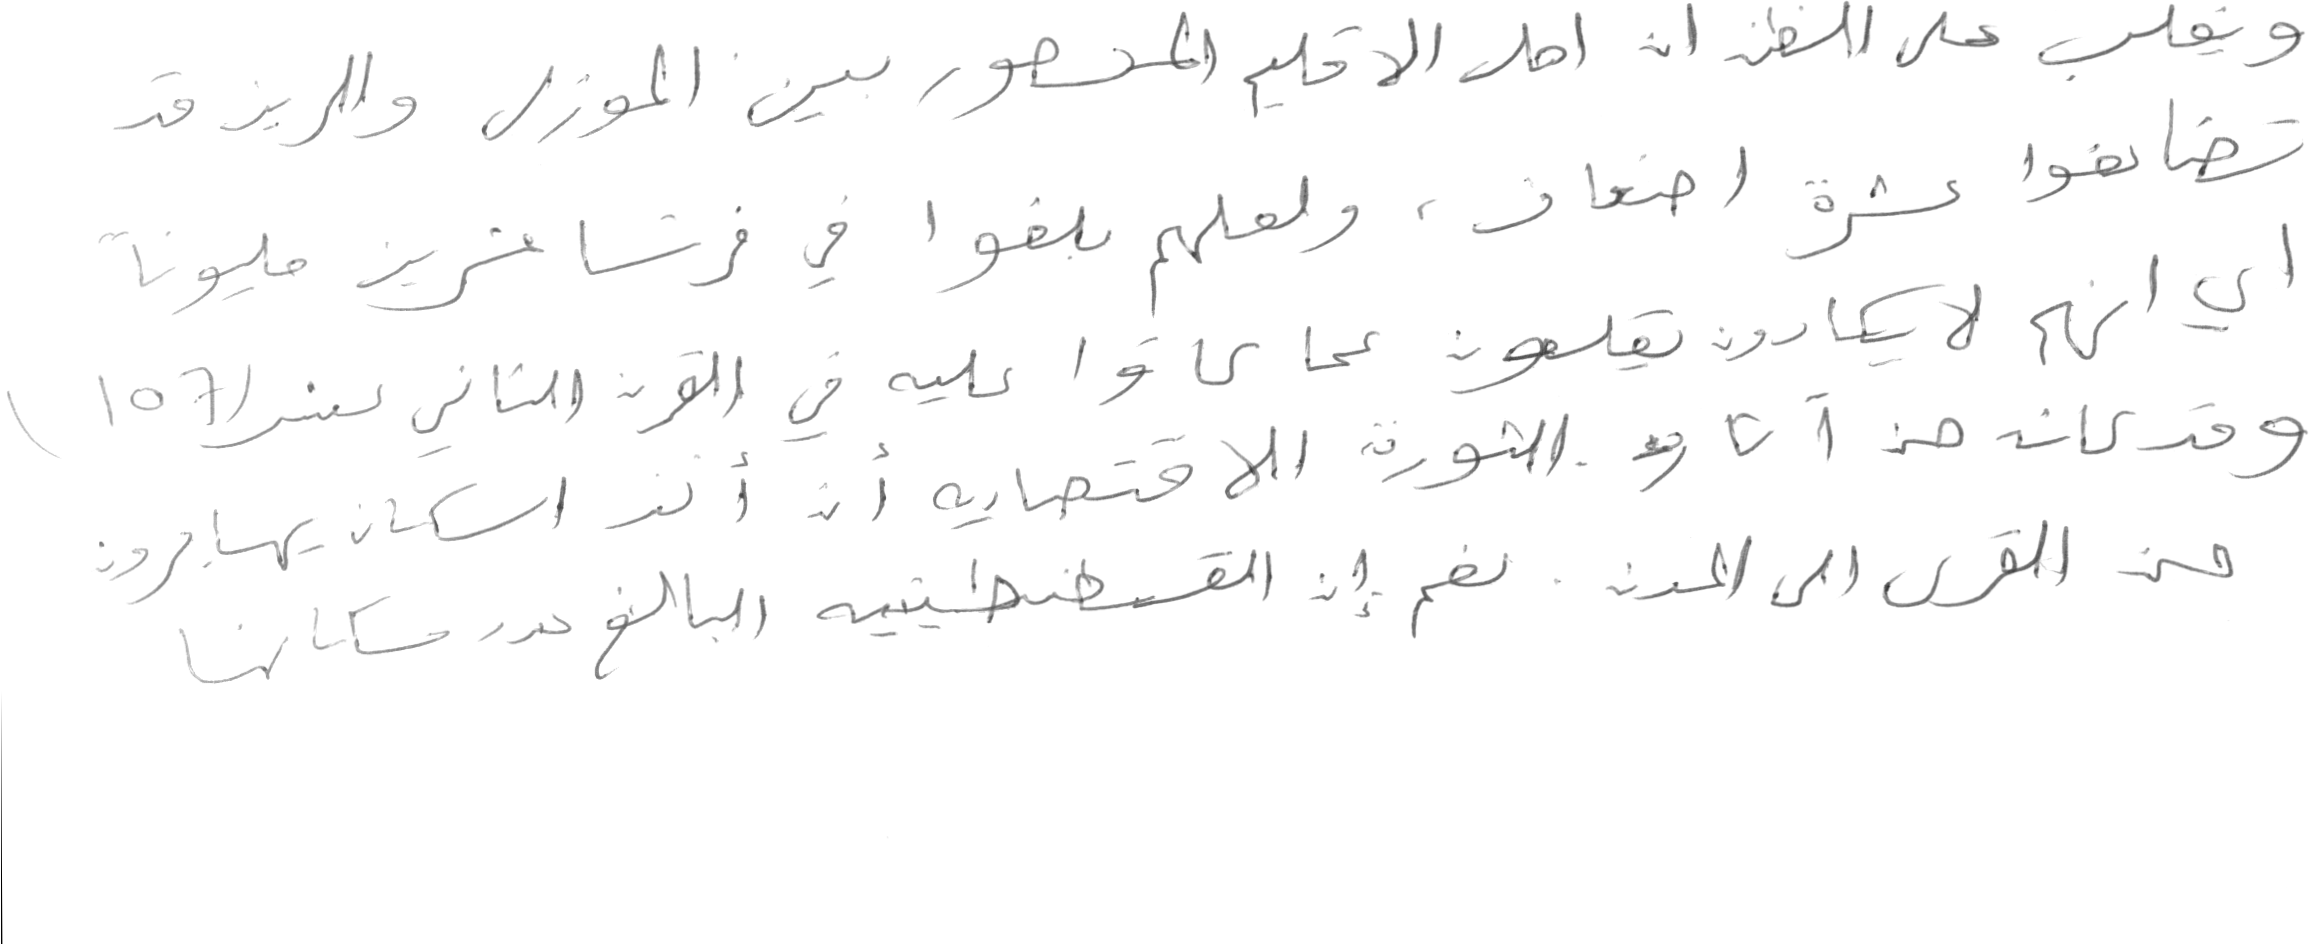 ويغلب على الظن ان اهل الاقليم المحصور بين الموزل والرين قد
تضاعفوا عشرة اضعاف، ولعلهم بلغوا في فرنسا عشرين مليوناً
اي انهم لا يكادون يقلون عما كانوا عليه في القرن الثاني عشر (107)
وقد كان من آثار الثورة الاقتصاديه أن أخذ السكان يهاجرون
من القرى الى المدن. نعم إن القسطنطينيه البالغ عدد سكانها